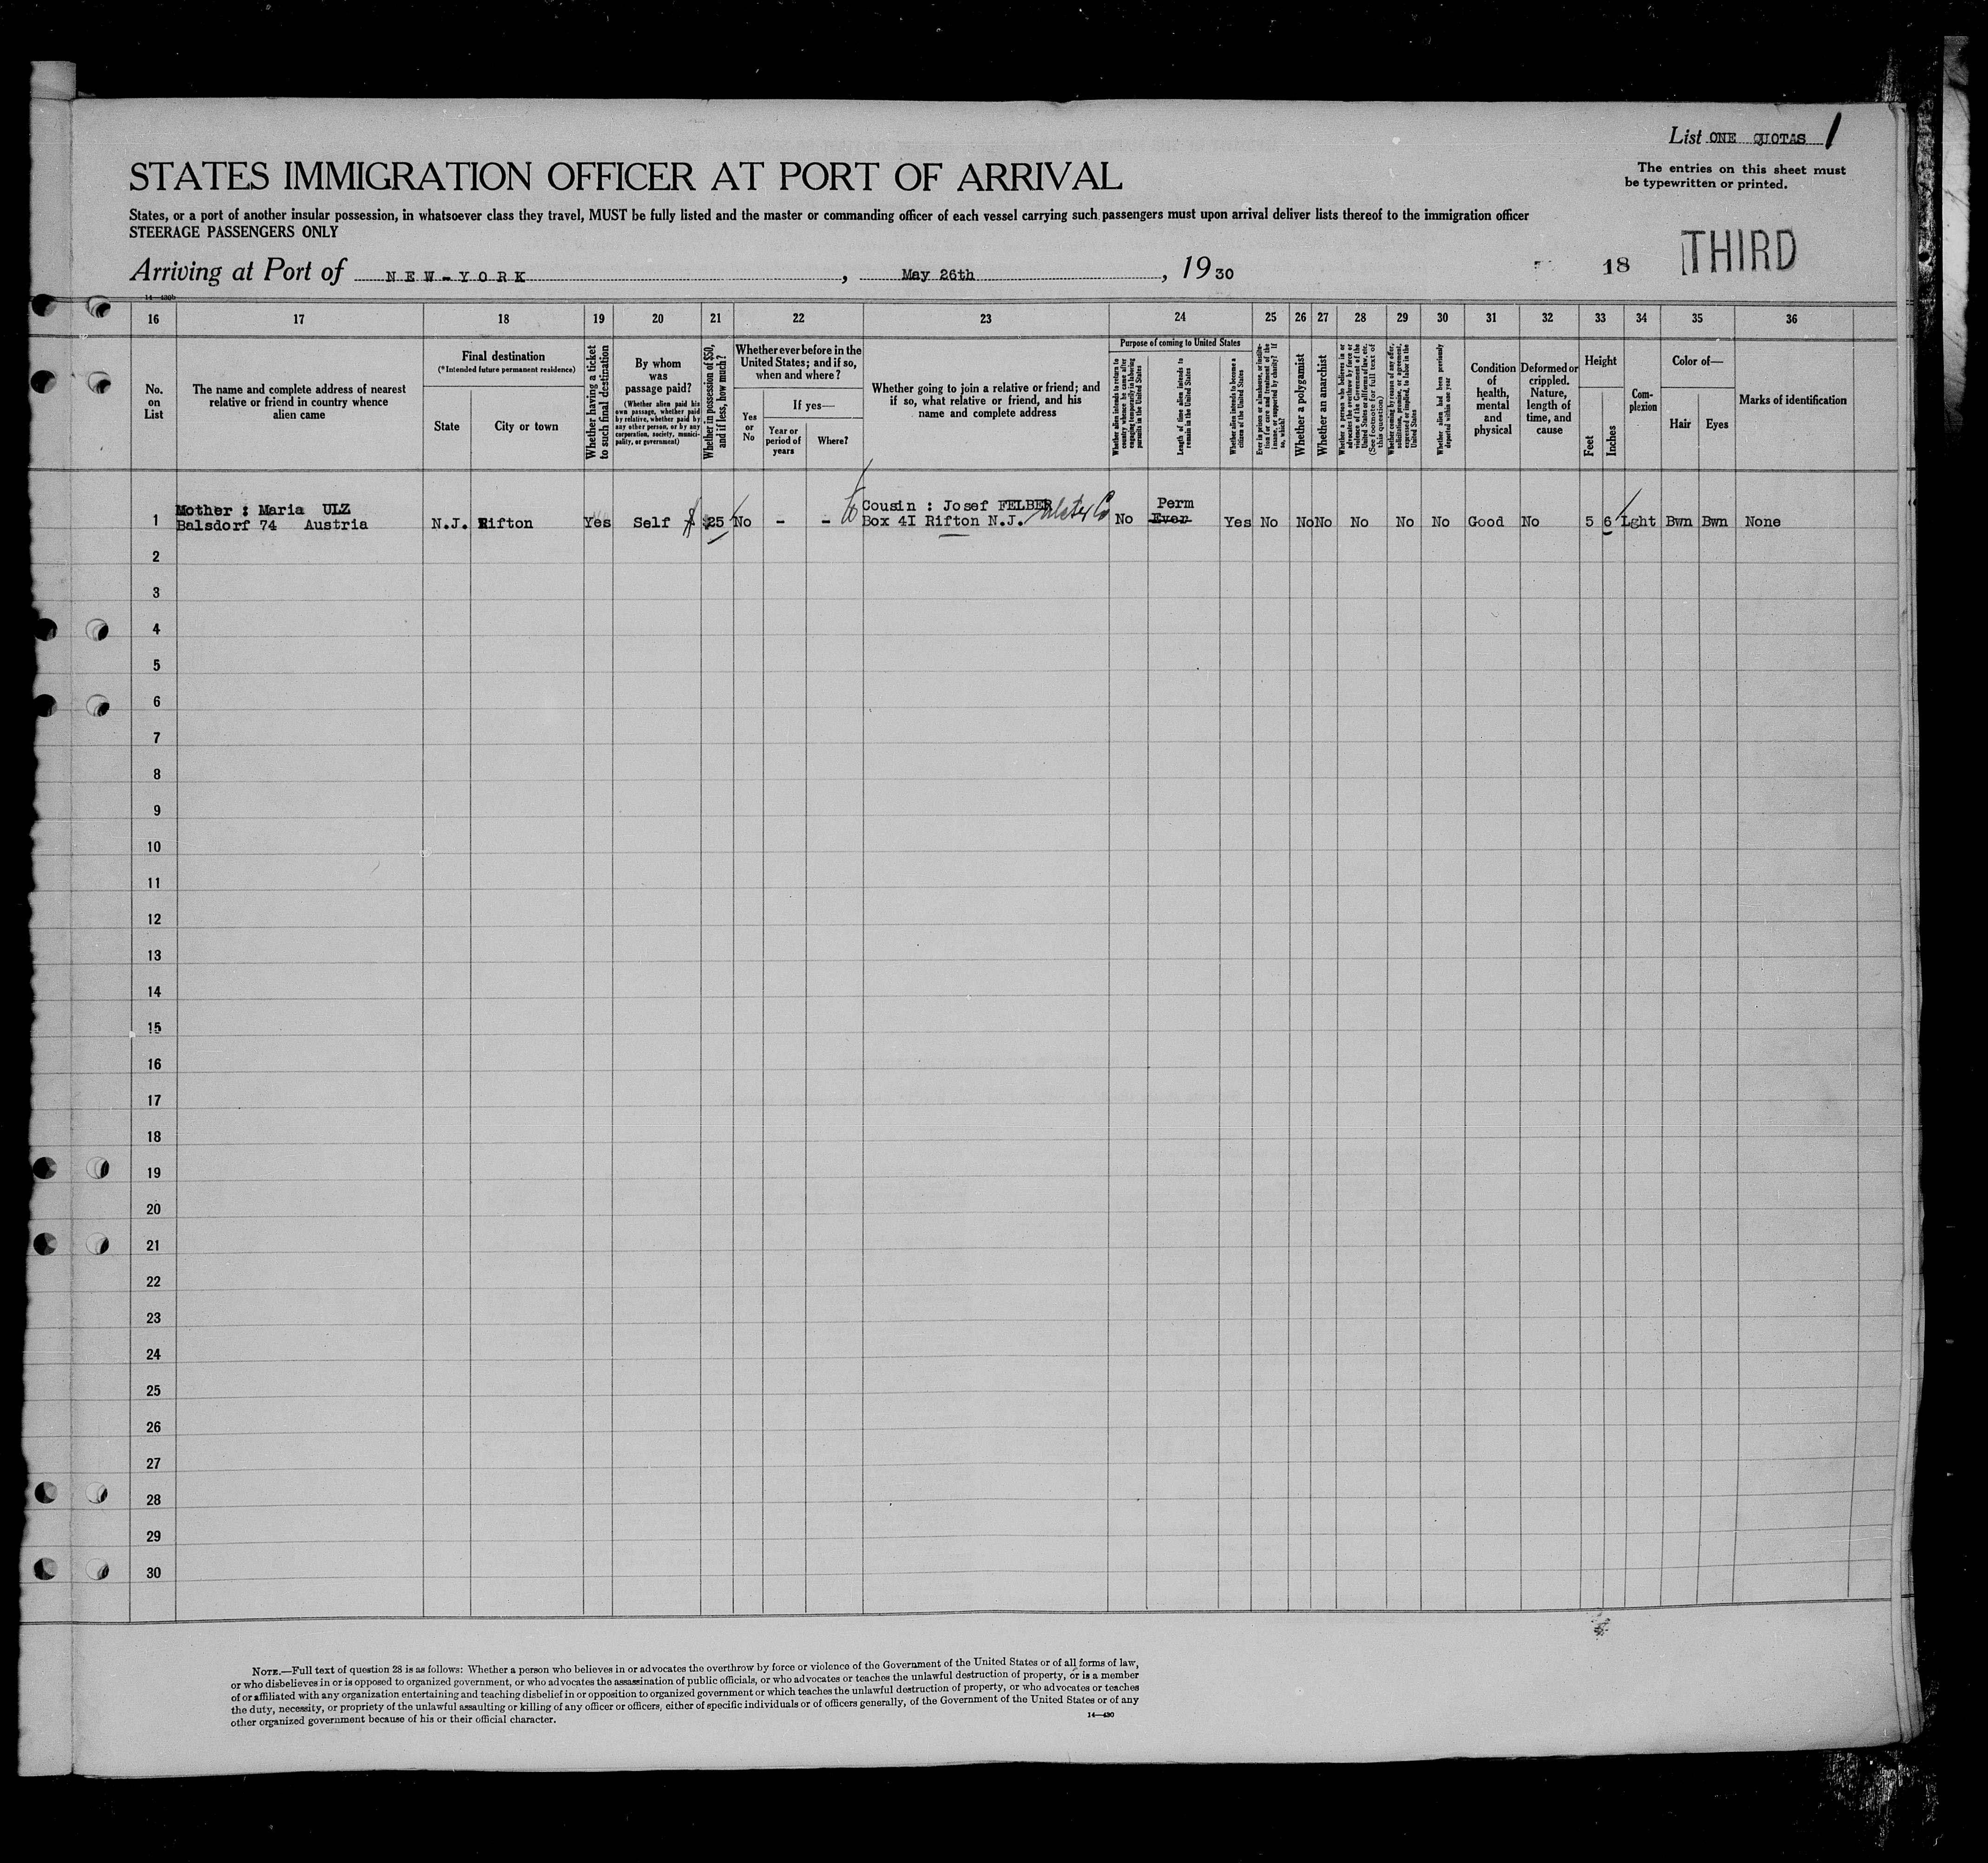 List ONE QUOTAS 1
The entries on this sheet must
be typewritten or printed.
STATES IMMIGRATION OFFICER AT PORT OF ARRIVAL
States, or a port of another insular possession, in whatsoever class they travel, MUST be fully listed and the master or commanding officer of each vessel carrying such passengers must upon arrival deliver lists thereof to the immigration officer
STEERAGE PASSENGERS ONLY
Arriving at Port of NEW-YORK, May 26th, 1930
18 THIRD
14—430b
16 17 18 19 20 21 22 23 24 25 26 27 28 29 30 31 32 33 34 35 36
No.
on
List
The name and complete address of nearest
relative or friend in country whence
alien came
Final destination
(*Intended future permanent residence)
State
City or town
Whether having a ticket
to such final destination
By whom
was
passage paid?
(Whether alien paid his
own passage, whether paid
by relative, whether paid by
any other person, or by any
corporation, society, munici-
pality, or government)
Whether in possession of $50,
and if less, how much?
Whether ever before in the
United States; and if so,
when and where?
Yes
or
No
If yes—
Year or
period of
years
Where?
Whether going to join a relative or friend; and
if so, what relative or friend, and his
name and complete address
Purpose of coming to United States
Whether alien intends to return to
country whence he came after
engaging temporarily in laboring
pursuits in the United States
Length of time alien intends to
remain in the United States
Whether alien intends to become a
citizen of the United States
Ever in prison or almshouse, or institu-
tion for care and treatment of the
insane, or supported by charity? If
so, which?
Whether a polygamist
Whether an anarchist
Whether a person who believes in or
advocates the overthrow by force or
violence of the Government of the
United States or all forms of law, etc.
(See footnote for full text of
this question)
Whether coming by reason of any offer,
solicitation, promise, or agreement,
expressed or implied, to labor in the
United States
Whether alien had been previously
deported within one year
Condition
of
health,
mental
and
physical
Deformed or
crippled.
Nature,
length of
time, and
cause
Height
Feet
Inches
Com-
plexion
Color of—
Hair
Eyes
Marks of identification
Mother : Maria ULZ
Cousin : Josef FELBER
Perm
1 Balsdorf 74 Austria N.J. Rifton Yes Self $25 No - - Box 4I Rifton N.J. Ulster Co No Ever Yes No No No No No No Good No 5 6 Lght Bwn Bwn None
2
3
4
5
6
7
8
9
10
11
12
13
14
15
16
17
18
19
20
21
22
23
24
25
26
27
28
29
30
NOTE.—Full text of question 28 is as follows: Whether a person who believes in or advocates the overthrow by force or violence of the Government of the United States or of all forms of law,
or who disbelieves in or is opposed to organized government, or who advocates the assassination of public officials, or who advocates or teaches the unlawful destruction of property, or is a member
of or affiliated with any organization entertaining and teaching disbelief in or opposition to organized government or which teaches the unlawful destruction of property, or who advocates or teaches
the duty, necessity, or propriety of the unlawful assaulting or killing of any officer or officers, either of specific individuals or of officers generally, of the Government of the United States or of any
other organized government because of his or their official character.
14—430